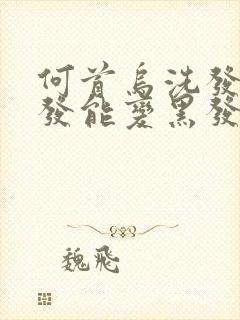 何首烏洗發
發能變黑發
魏飛